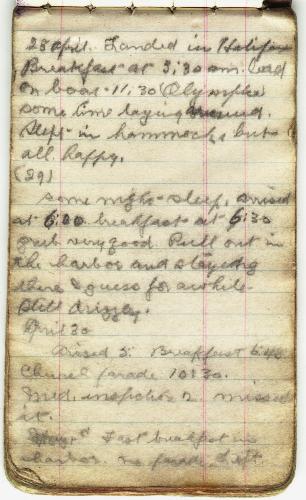 28 April. Landed in Halifax
Breakfast at 3:30 am. Load
on boat 11:30 (Olympic)
some time laying around.
Slept in hammocks but
all happy.
(29)
some night sleep, arised
at 6:00 breakfast at 6:30
grub very good. Pull out in
the harbor and staying
there I guess for awhile
still drizzly.
April 30
Arised 5. Breakfast 6:45
Church parade 10:30.
Med. inspection 2. missed
it.
Last breakfast in
harbor. no parade. Left